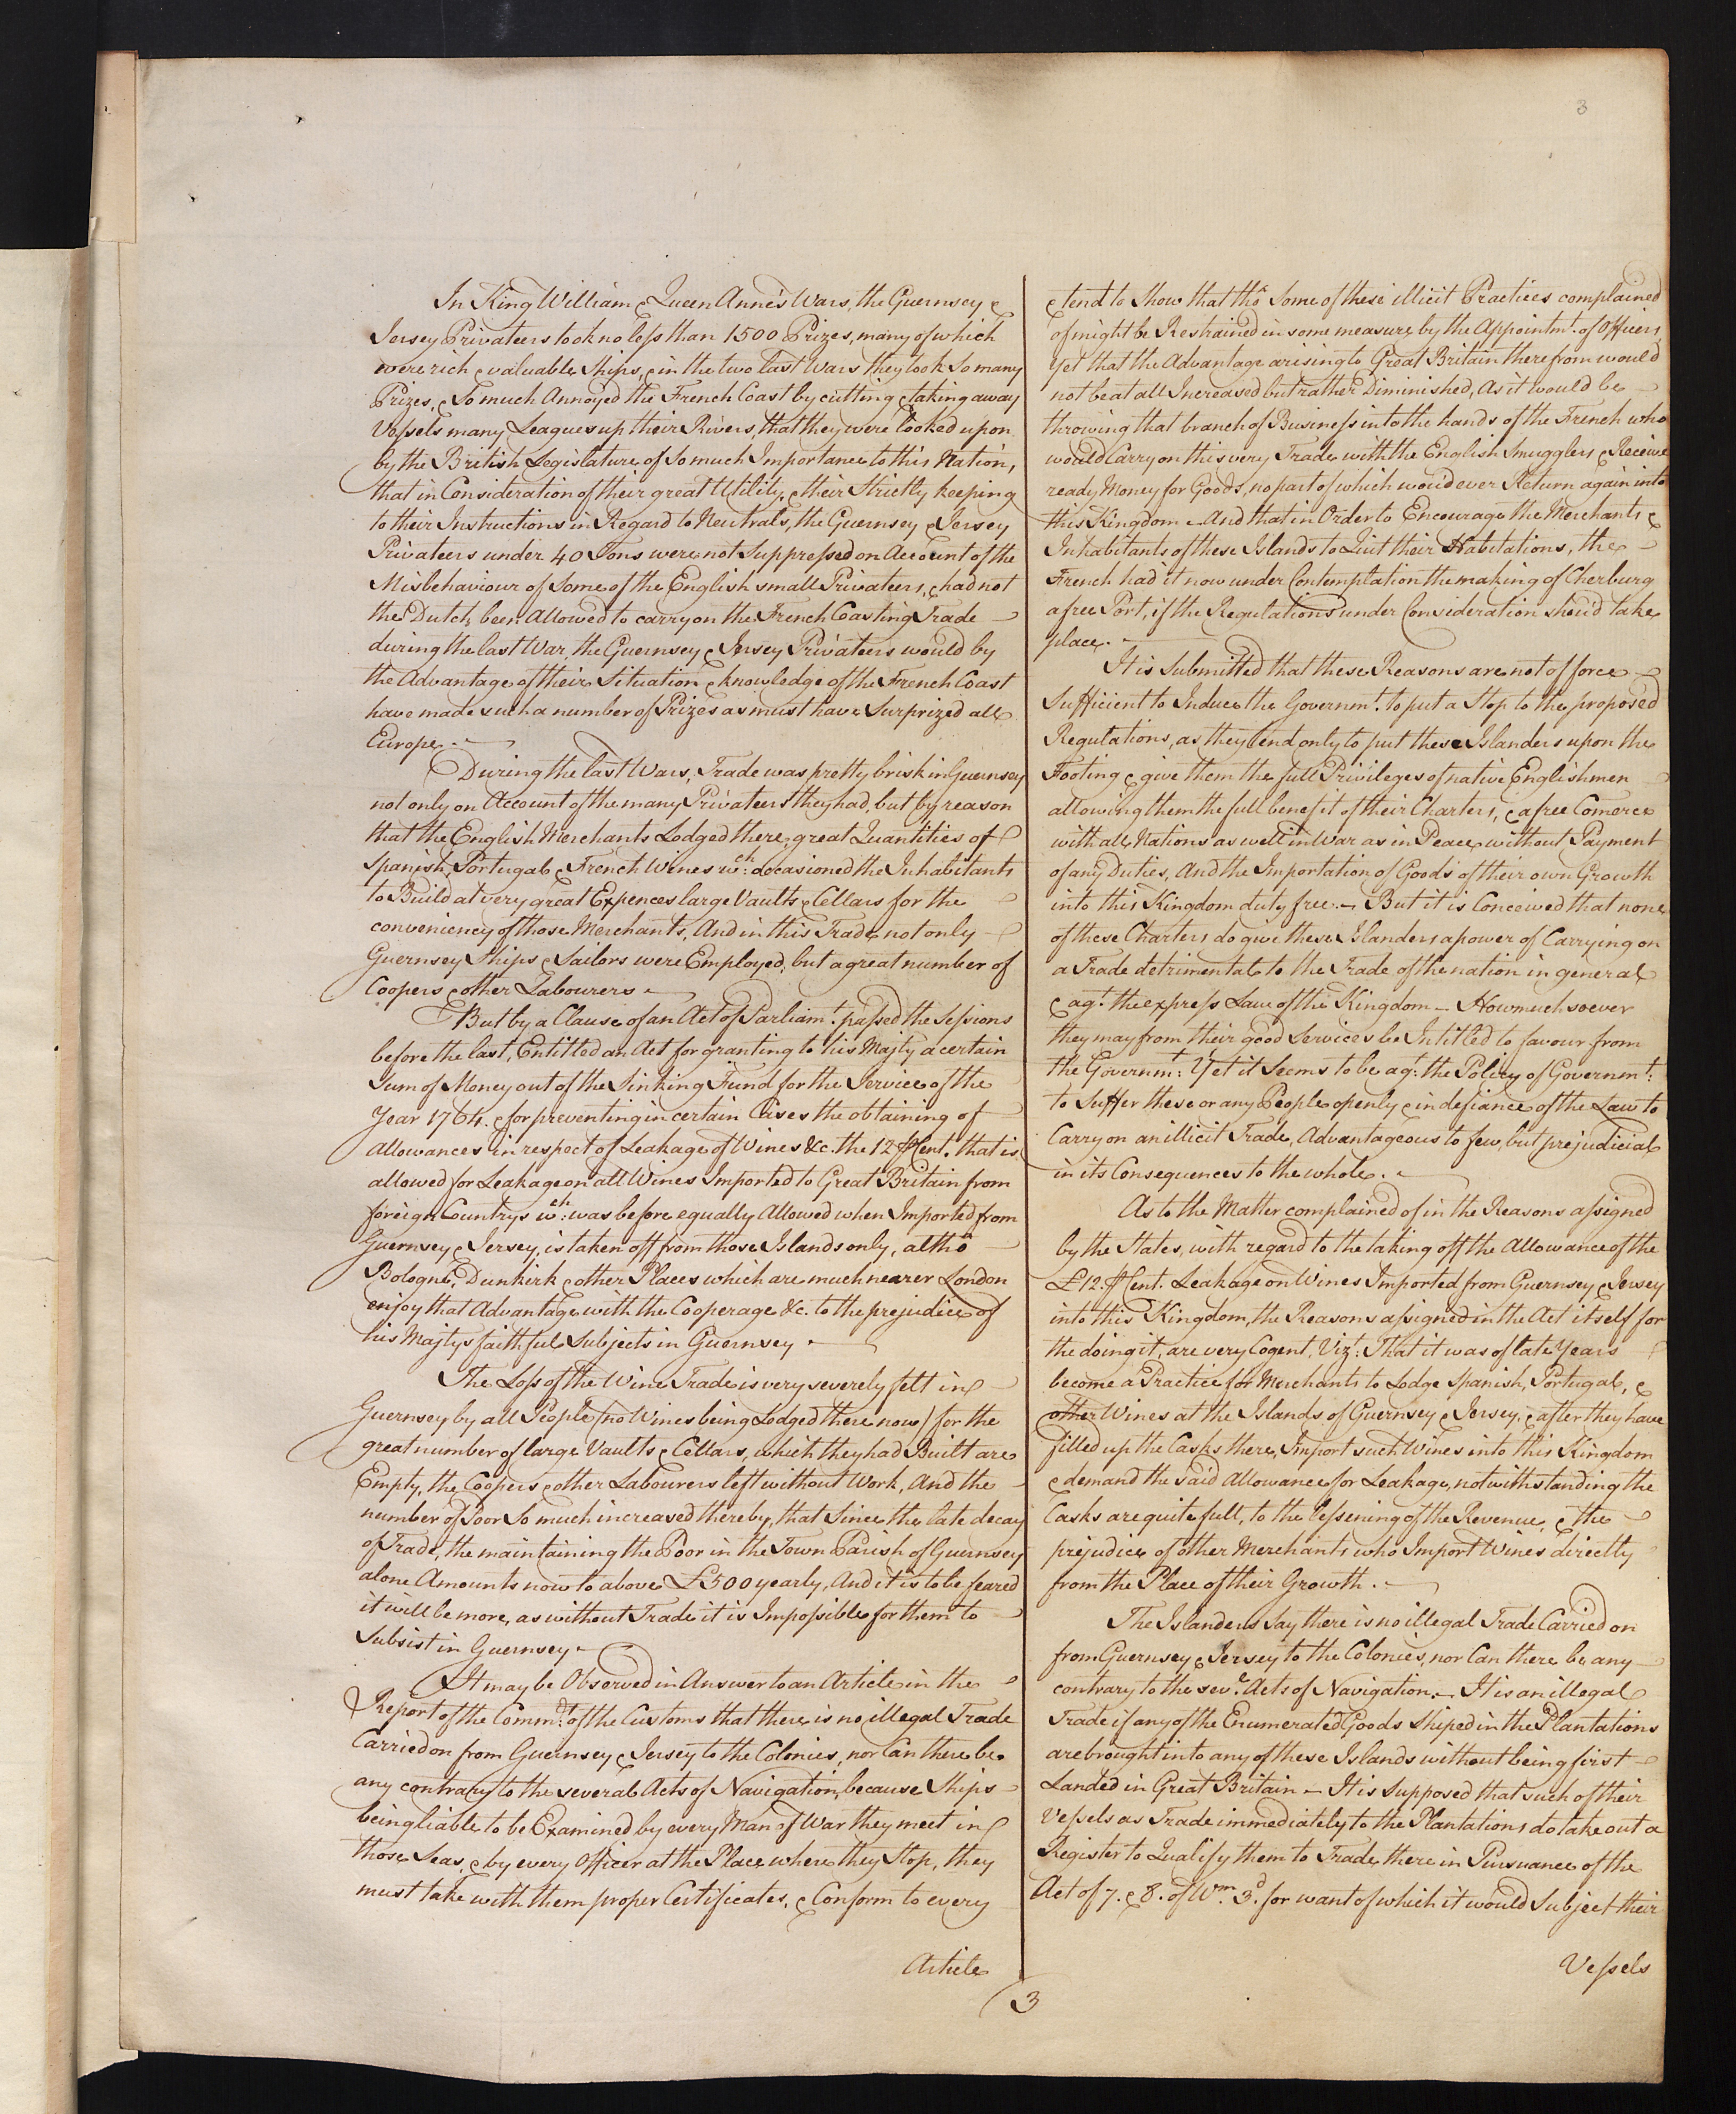 3
In King William & Queen Anne's Wars, the Guernsey &
Jersey Privateers took no less than 1500 Prizes, many of which
were rich & valuable Ships, & in the two last Wars they took So many
Prizes, & So much Annoyed the French Coast by cutting & taking away
Vessels many Leagues up their Rivers, that they were looked upon
by the British Legislature of So much Importance to this Nation,
that in Consideration of their great Utility, & their Strictly keeping
to their Instructions in Regard to Neutrals, the Guernsey & Jersey
Privateers under 40 Tons were not Suppressed on Account of the
Misbehaviour of Some of the English small Privateers, & had not
the Dutch been Allowed to carry on the French Coasting Trade
during the last War, the Guernsey & Jersey Privateers would by
the Advantage of their Situation & knowledge of the French Coast
have made such a number of Prizes as must have Surprized all
Europe.
During the last Wars, Trade was pretty brisk in Guernsey
not only on Account of the many Privateers they had, but by reason
that the English Merchants Lodged there, great Quantities of
Spanish, Portugal & French Wines wch: occasioned the Inhabitants
to Build at very great Expences large Vaults & Cellars for the
conveniency of those Merchants, And in this Trade not only
Guernsey Ships & Sailors were Employed, but a great number of
Coopers & other Labourers.
But by a Clause of an Act of Parliamt. passed the Sessions
before the last, Entitled an Act for granting to his Majty a certain
Sum of Money out of the Sinking Fund for the Service of the
Year 1764. & for preventing in certain Cases the obtaining of
allowances in respect of Leakage of Wines &c. the 12 ⅌ Cent. that is
allowed for Leakage on all Wines Imported to Great Britain from
foreign Countrys wch: was before equally Allowed when Imported from
Guernsey & Jersey, is taken off from those Islands only, altho
Bologne, Dunkirk & other Places which are much nearer London
enjoy that Advantage with the Cooperage &c. to the prejudice of
his Majtys faithful Subjects in Guernsey.
The Loss of the Wine Trade is very severely felt in
Guernsey by all People (no Wines being Lodged there now) for the
great number of large Vaults & Cellars, which they had Built are
Empty, the Coopers & other Labourers left without Work, And the
number of Poor So much increased thereby, that Since the late decay
of Trade, the maintaining the Poor in the Town Parish of Guernsey
alone Amounts now to above £500 yearly, And it is to be feared
it will be more, as without Trade it is Impossible for them to
Subsist in Guernsey.
It may be Observed in Answer to an Article in the
Report of the Commrs. of the Customs that there is no illegal Trade
Carried on from Guernsey & Jersey to the Colonies, nor Can there be
any contrary to the several Acts of Navigation, because Ships
being liable to be Examined by every Man of War they meet in
those Seas, & by every Officer at the Place where they Stop, they
must take with them proper Certificates, & Conform to every
Article
& tend to Show that tho' Some of these illicit Practices complained
of might be Restrained in some measure by the Appointmt. of Officers,
Yet that the Advantage arising to Great Britain therefrom would
not be at all Increased but rather Diminished, As it would be
throwing that branch of Business into the hands of the French who
would Carry on this very Trade with the English Smugglers & Receive
ready Money for Goods, no part of which wou'd ever Return again into
this Kingdom – And that in Order to Encourage the Merchants &
Inhabitants of these Islands to Quit their Habitations, the
French had it now under Contemplation the making of Cherburg
a free Port, if the Regulations under Consideration shou'd take
place.
It is Submitted that these Reasons are not of force
Sufficient to Induce the Governmt. to put a Stop to the proposed
Regulations, as they tend only to put these Islanders upon the
Footing & give them the full Privileges of native Englishmen
allowing them the full benefit of their Charters, & a free Comerce
with all Nations as well in War as in Peace without Payment
of any Duties, And the Importation of Goods of their own Growth
into this Kingdom duty free. – But it is Conceived that none
of these Charters do give these Islanders a power of Carrying on
a Trade detrimental to the Trade of the nation in general
& agt. the express Law of the Kingdom – Howmuchsoever
they may from their good Services be Intitled to favour from
the Governmt: Yet it Seems to be agt: the Policy of Governmt:
to Suffer these or any People openly & in defiance of the Law to
Carry on an illicit Trade, Advantageous to few, but prejudicial
in its Consequences to the whole.
As to the Matter complained of in the Reasons assigned
by the States, with regard to the taking off the Allowance of the
£12. ⅌ Cent. Leakage on Wines Imported from Guernsey & Jersey
into this Kingdom, the Reasons assigned in the Act itself for
the doing it, are very Cogent. Vizt: That it was of late Years
become a Practice for Merchants to Lodge Spanish, Portugal, &
other Wines at the Islands of Guernsey & Jersey, & after they have
filled up the Casks there, Import such Wines into this Kingdom
& demand the said Allowance for Leakage, notwithstanding the
Casks are quite full, to the lessening of the Revenue, & the
prejudice of other Merchants who Import Wines directly
from the Place of their Growth.
The Islanders Say there is no illegal Trade Carried on
from Guernsey & Jersey to the Colonies, nor Can there be any
contrary to the sevl. Acts of Navigation. – It is an illegal
Trade if any of the Enumerated Goods Shiped in the Plantations
are brought into any of these Islands without being first
Landed in Great Britain – It is Supposed that such of their
Vessels as Trade immediately to the Plantations do take out a
Register to Qualify them to Trade there in Pursuance of the
Act of 7. & 8. of Wm. 3d. for want of which it would Subject their
Vessels
3